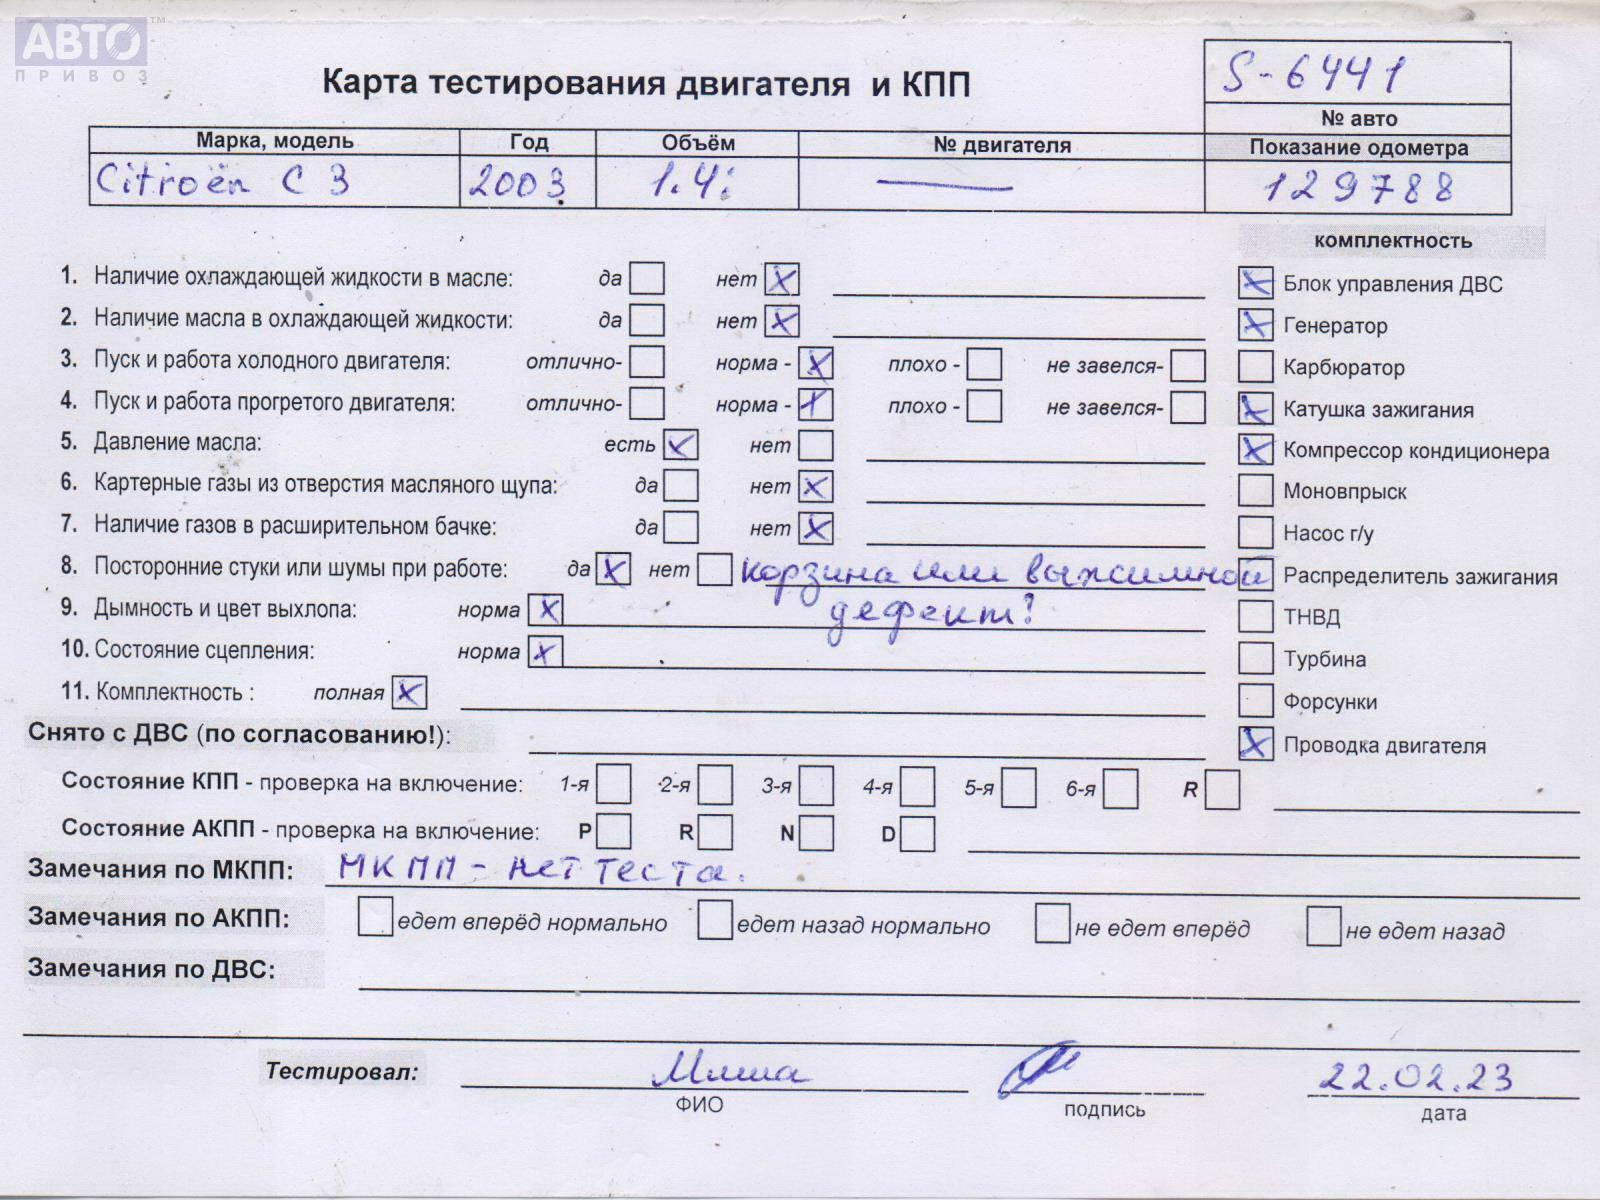 АВТО ™
ПРИВОЗ
Карта тестирования двигателя и КПП
S-6441
№ авто
Марка, модель Год Объём № двигателя Показание одометра
Citroën C 3 2003 1.4i — 129788
комплектность
1. Наличие охлаждающей жидкости в масле: да нет X
2. Наличие масла в охлаждающей жидкости: да нет X
3. Пуск и работа холодного двигателя: отлично- норма - X плохо - не завелся-
4. Пуск и работа прогретого двигателя: отлично- норма - X плохо - не завелся-
5. Давление масла: есть X нет
6. Картерные газы из отверстия масляного щупа: да нет X
7. Наличие газов в расширительном бачке: да нет X
8. Посторонние стуки или шумы при работе: да X нет корзина или выжимной
9. Дымность и цвет выхлопа: норма X дефект?
10. Состояние сцепления: норма X
11. Комплектность : полная X
X Блок управления ДВС
X Генератор
Карбюратор
X Катушка зажигания
X Компрессор кондиционера
Моновпрыск
Насос г/у
Распределитель зажигания
ТНВД
Турбина
Форсунки
X Проводка двигателя
Снято с ДВС (по согласованию!):
Состояние КПП - проверка на включение: 1-я 2-я 3-я 4-я 5-я 6-я R
Состояние АКПП - проверка на включение: P R N D
Замечания по МКПП: МКПП - нет теста.
Замечания по АКПП: едет вперёд нормально едет назад нормально не едет вперёд не едет назад
Замечания по ДВС:
Тестировал: Миша 22.02.23
ФИО подпись дата